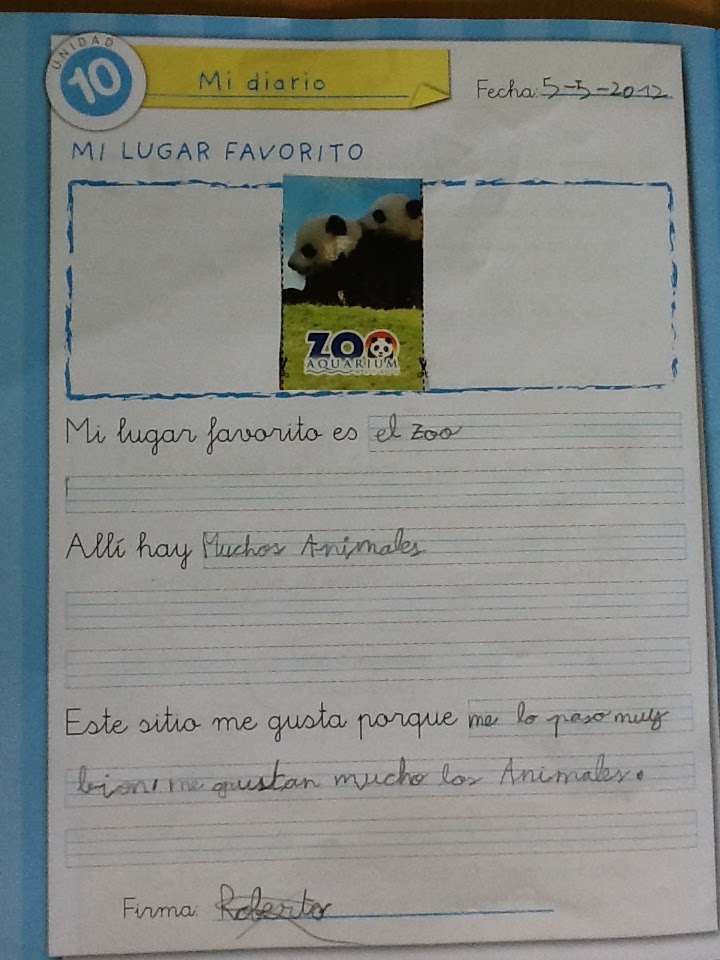 UNIDAD
10
Mi diario
Fecha: 5-5-2012
MI LUGAR FAVORITO
ZOO
AQUARIUM
Mi lugar favorito es el zoo
Allí hay Muchos Animales
Este sitio me gusta porque me lo paso muy
bien, me gustan mucho los Animales.
Firma: Roberto